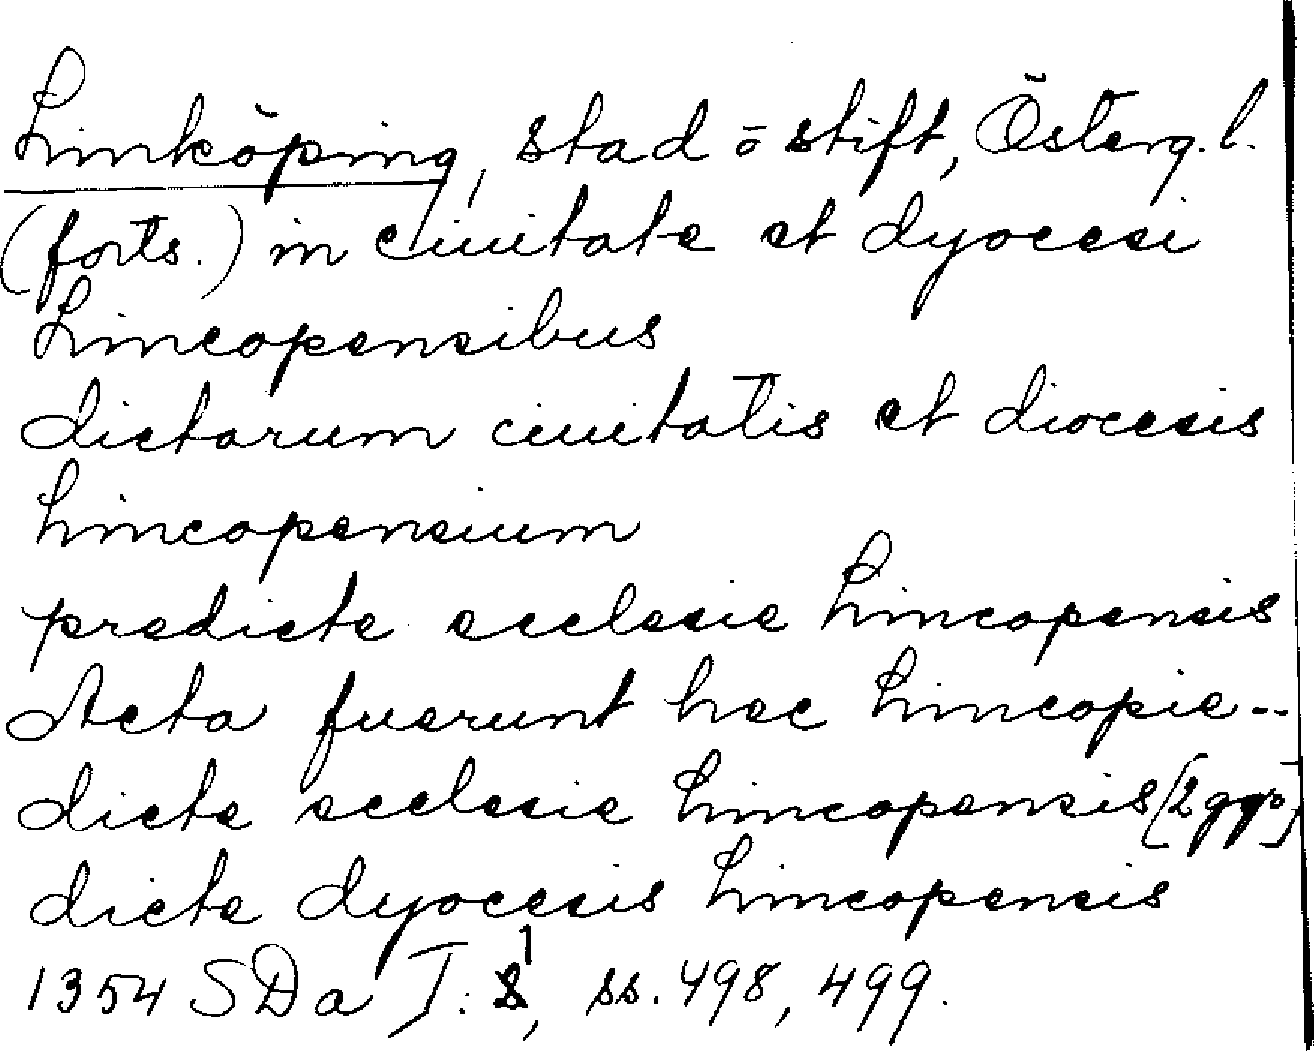 Linköping, stad o stift, Österg.l.
(forts.) in ciuitate et dyocesi
Lincopensibus
dictarum ciuitatis et diocesis
Lincopensium
predicte ecclesie Lincopensis
Acta fuerunt hec Lincopie--
dicte ecclesie Lincopensis [2 ggr]
dicte dyocesis Lincopensis
1354 SDa I: 1, ss. 498, 499.